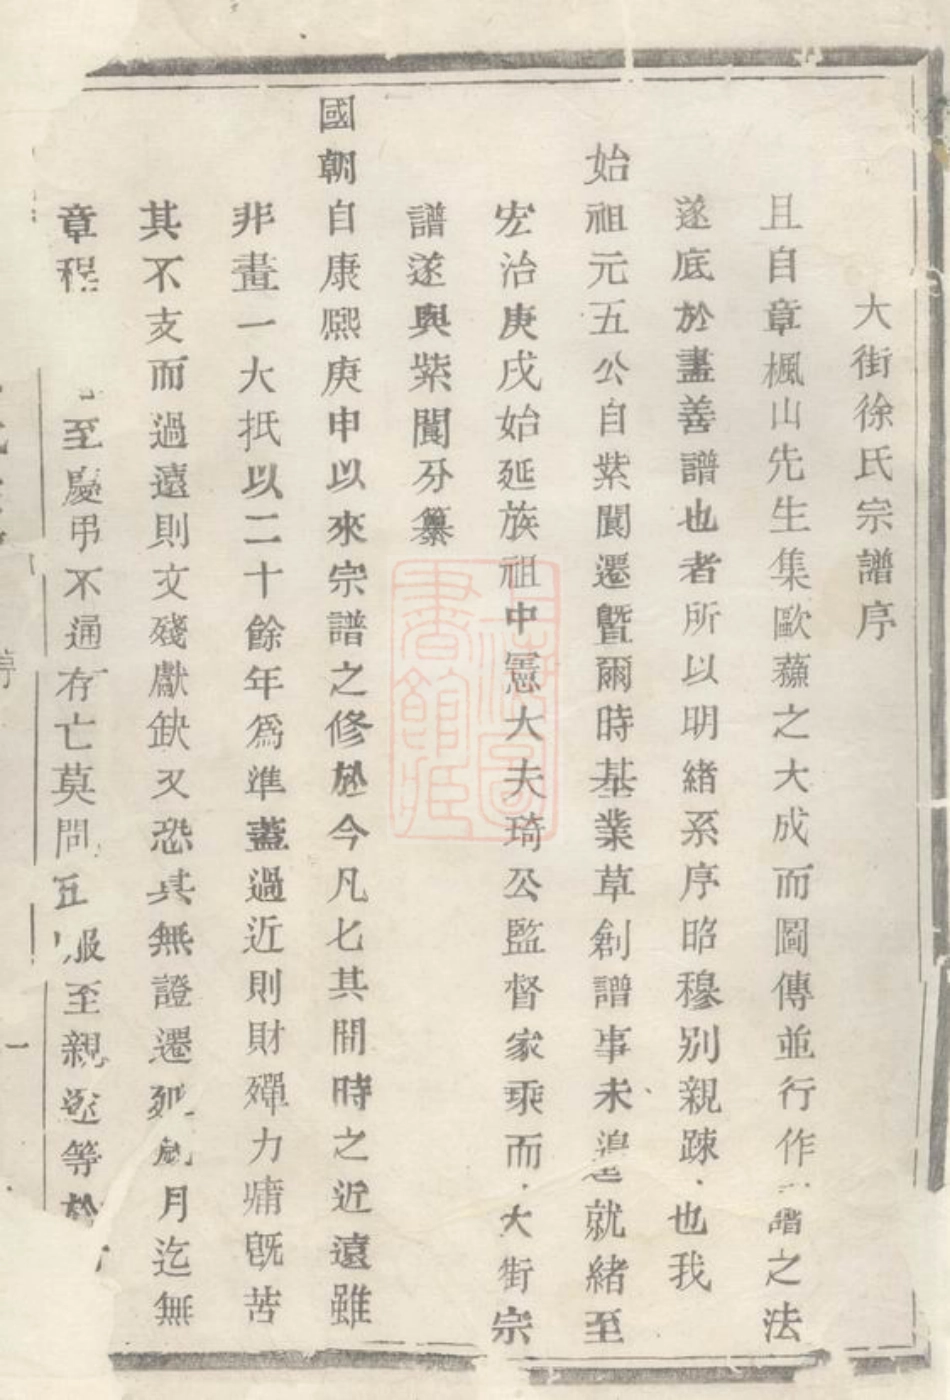 大街徐氏宗譜序
且自章楓山先生集歐蘓之大成而圖傳並行作譜之法
遂底於盡善譜也者所以明緒系序昭穆別親踈也我
始祖元五公自紫閬遷暨爾時基業草創譜事未遑就緒至
宏治庚戌始延族祖中憲大夫琦公監督家乘而大街宗
譜遂與紫閬分纂
國朝自康熙庚申以來宗譜之修於今凡七其間時之近遠雖
非畫一大抵以二十餘年爲準蓋過近則財殫力痡旣苦
其不支而過遠則文殘獻缺又恐其無證遷延歲月迄無
章程 至慶弔不通存亡莫問五服至親逐等於
序
一
上海圖書館藏